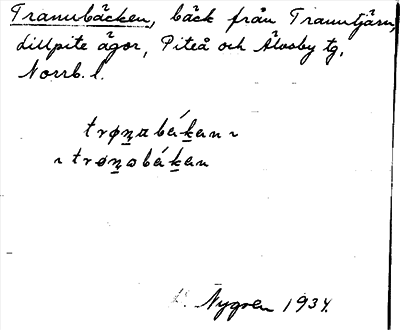 Tranubäcken, bäck från Tranutjärn,
Lillpite ägor, Piteå och Älvsby tg.
Norrb. l.
trøn̠abák̠an ~
~ trøn̠abák̠an
Nygren 1934.